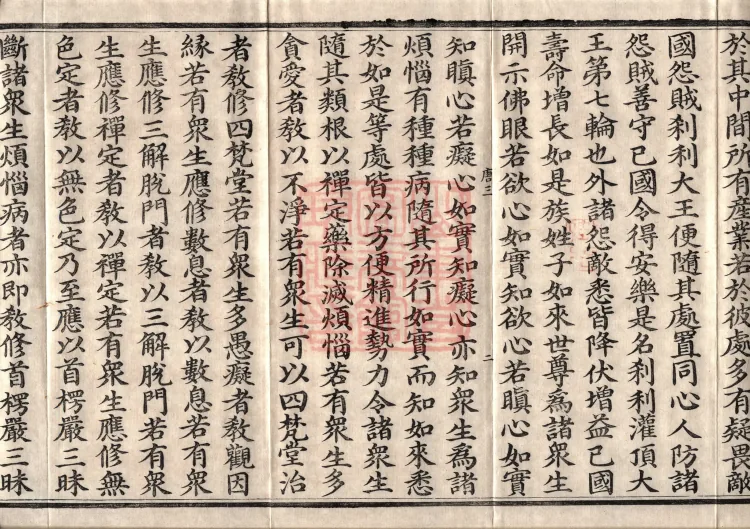 於其中間所有産業若於彼處多有疑畏敵
國怨賊刹利大王便隨其處置同心人防諸
怨賊善守已國令得安樂是名刹利灌頂大
王第七輪也外諸怨敵悉皆降伏增益已國
壽命增長如是族姓子如來世尊爲諸衆生
開示佛眼若欲心如實知欲心若瞋心如實
知瞋心若癡心如實知癡心亦知衆生爲諸
煩惱有種種病隨其所行如實而知如來悉
於如是等處皆以方便精進勢力令諸衆生
隨其類根以禪定藥除滅煩惱若有衆生多
貪愛者教以不淨若有衆生可以四梵堂治
者教修四梵堂若有衆生多愚癡者教觀因
緣若有衆生應修數息者教以數息若有衆
生應修三解脫門者教以三解脫門若有衆
生應修禪定者教以禪定若有衆生應修無
色定者教以無色定乃至應以首楞嚴三昧
斷諸衆生煩惱病者亦即教修首楞嚴三昧